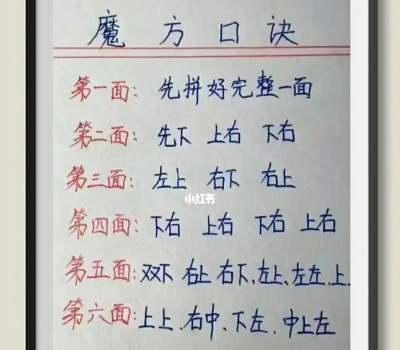 魔方口诀
第一面：先拼好完整一面
第二面：先下 上右 下右
第三面：左上 右下 右上
小红书
第四面：下右 上右 下右 上右
第五面：双下 右上 右下、左上、左左、上、
第六面：上上、右中、下左、中上左